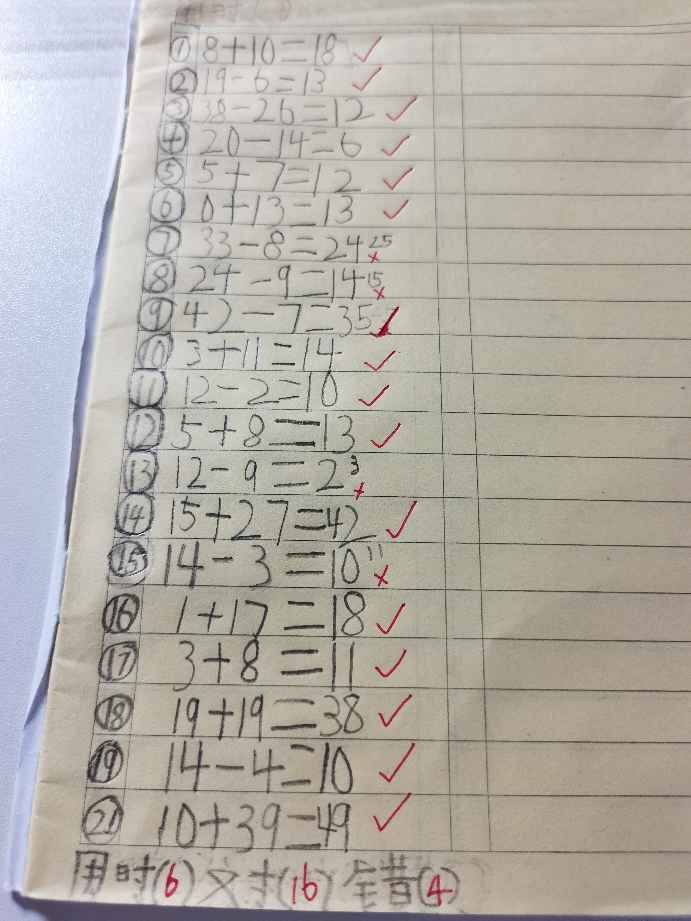 ① 8+10=18 ✓
② 19-6=13 ✓
③ 38-26=12 ✓
④ 20-14=6 ✓
⑤ 5+7=12 ✓
⑥ 0+13=13 ✓
⑦ 33-8=24 25 ×
⑧ 24-9=14 15 ×
⑨ 42-7=35 ✓
⑩ 3+11=14 ✓
⑪ 12-2=10 ✓
⑫ 5+8=13 ✓
⑬ 12-9=2 3 ×
⑭ 15+27=42 ✓
⑮ 14-3=10 11 ×
⑯ 1+17=18 ✓
⑰ 3+8=11 ✓
⑱ 19+19=38 ✓
⑲ 14-4=10 ✓
㉑ 10+39=49 ✓
用时(6) 对(16) 错(4)